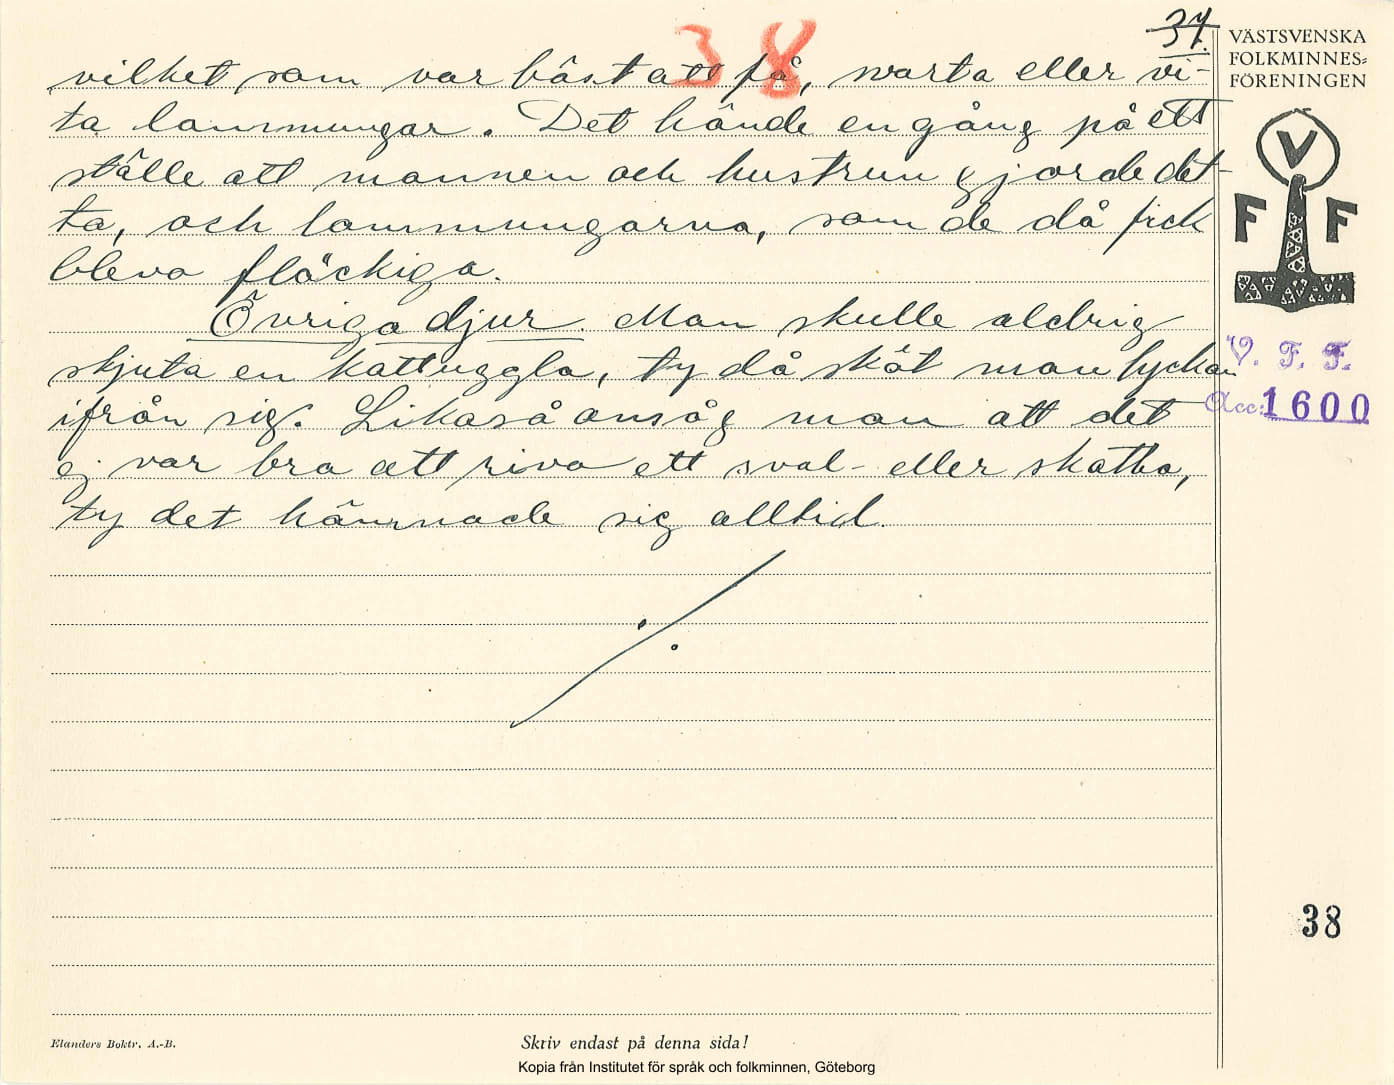 38
37.
vilket som var bäst att få, svarta eller vi-
ta lammungar. Det hände en gång på ett
ställe att mannen och hustrun gjorde det-
ta, och lammungarna, som de då fick
bleva fläckiga.
Övriga djur. Man skulle aldrig
skjuta en kattuggla, ty då sköt man lyckan
ifrån sig. Likaså ansåg man att det
ej var bra att riva ett sval- eller skatbo,
ty det hämnade sig alltid.
VÄSTSVENSKA
FOLKMINNES=
FÖRENINGEN
V
F F
V. F. F.
Acc: 1600
38
Elanders Boktr. A.-B.
Skriv endast på denna sida!
Kopia från Institutet för språk och folkminnen, Göteborg